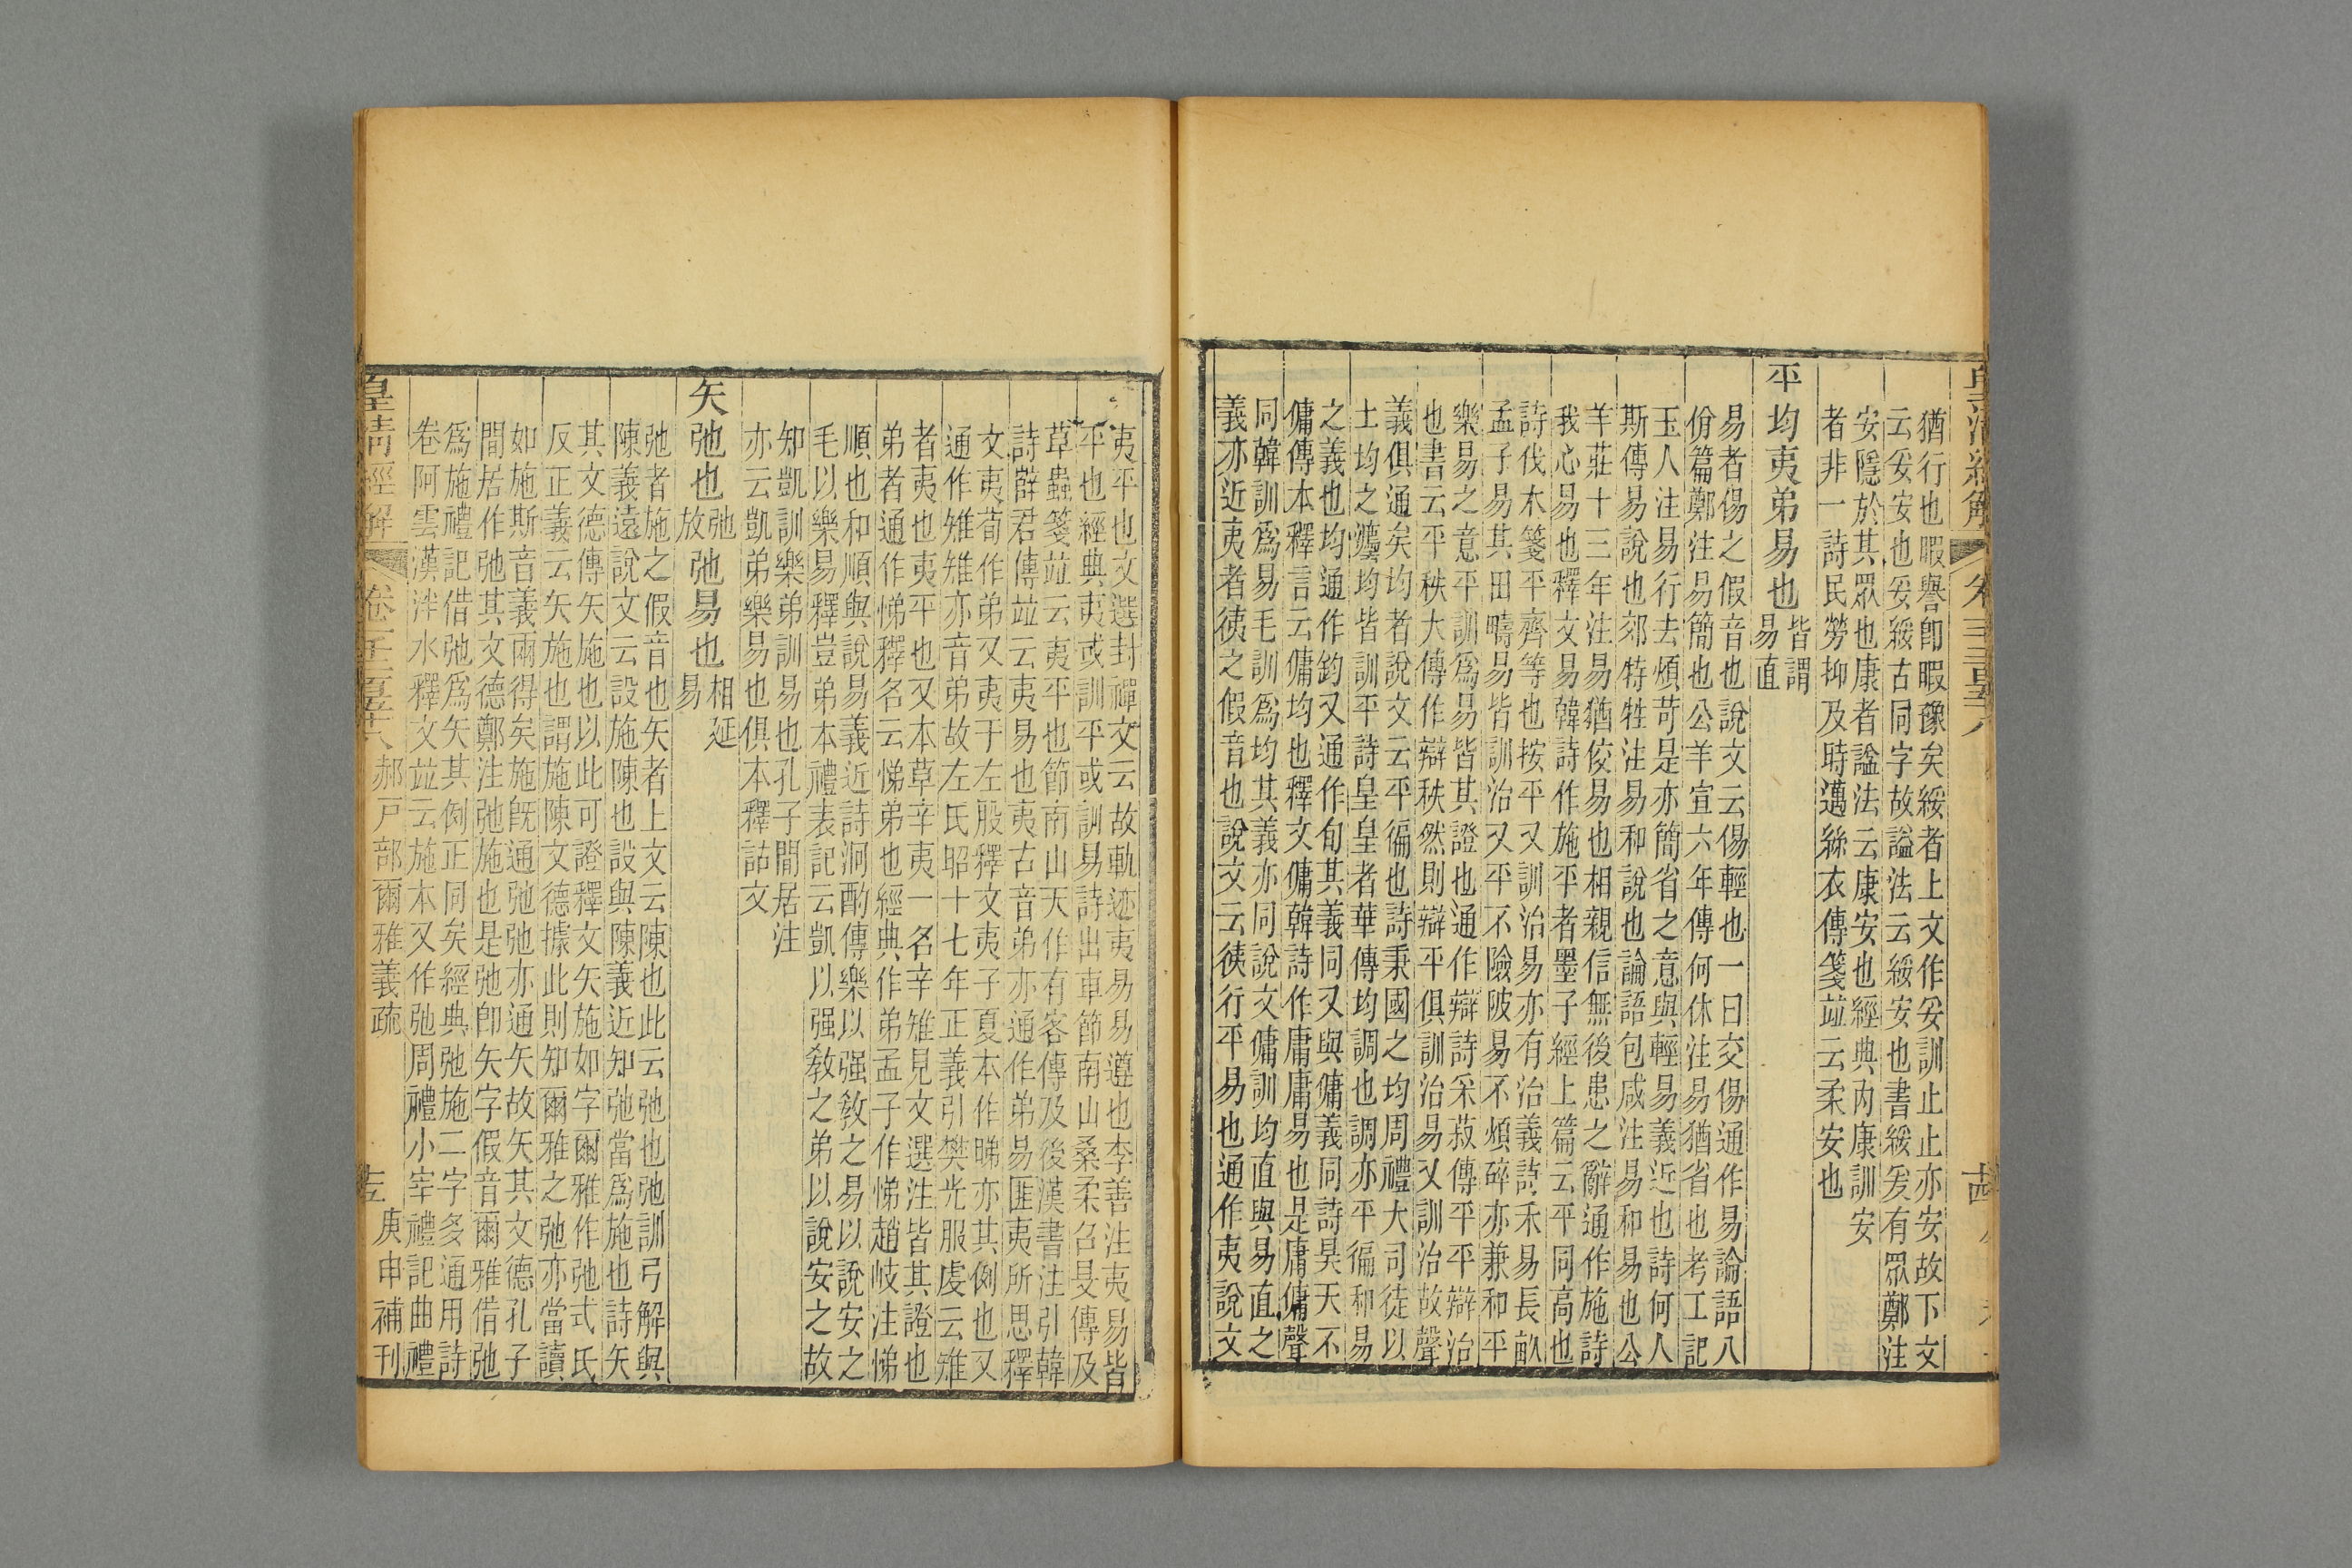 皇清經解
猶行也暇譽卽暇豫矣綏者上文作妥訓止止亦安故下文
云妥安也妥綏古同字故謚法云綏安也書綏爰有眾鄭注
安隱於其眾也康者謚法云康安也經典丙康訓安
者非一詩民勞抑及時邁絲衣傳箋竝云柔安也
平均夷弟易也皆謂
易直
易者傷之假音也說文云傷輕也一曰交傷通作易論語八
佾篇鄭注易簡也公羊宣六年傳何休注易猶省也考工記
玉人注易行去煩苛是亦簡省之意與輕易義近也詩何人
斯傳易說也郊特牲注易和說也論語包咸注易和易也公
羊莊十三年注易猶佼易也相親信無後患之辭通作施詩
我心易也釋文易韓詩作施平者墨子經上篇云平同高也
詩伐木箋平齊等也按平又訓治易亦有治義詩禾易長畝
孟子易其田疇易皆訓治又平不險陂易不煩碎亦兼和平
樂易之意平訓爲易皆其證也通作辯詩采菽傳平平辯治
也書云平秩大傳作辯秩然則辯平俱訓治易又訓治故聲
義俱通矣均者說文云平徧也詩秉國之均周禮大司徒以
土均之灋均皆訓平詩皇皇者華傳均調也調亦平徧和易
之義也均通作鈞又通作旬其義同又與傭義同詩昊天不
傭傳本釋言云傭均也釋文傭韓詩作庸庸易也是庸傭聲
同韓訓爲易毛訓爲均其義亦同說文傭訓均直與易直之
義亦近夷者徚之假音也說文云徚行平易也通作夷說文
夷平也文選封禪文云故軌迹夷易易遵也李善注夷易皆
平也經典夷或訓平或訓易詩出車節南山桑柔召旻傳及
草蟲箋竝云夷平也節南山天作有客傳及後漢書注引韓
詩薛君傳竝云夷易也夷古音弟亦通作弟易匪夷所思釋
文夷荀作弟又夷于左股釋文夷子夏本作睇亦其例也又
通作雉雉亦音弟故左氏昭十七年正義引樊光服虔云雉
者夷也夷平也又本草辛夷一名辛雉見文選注皆其證也
弟者通作悌釋名云悌弟也經典作弟孟子作悌趙岐注悌
順也和順與說易義近詩泂酌傳樂以强敎之易以說安之
毛以樂易釋豈弟本禮表記云凱以强敎之弟以說安之故
知凱訓樂弟訓易也孔子閒居注
亦云凱弟樂易也俱本釋詁文
矢弛也弛
放弛易也相延
易
弛者施之假音也矢者上文云陳也此云弛也弛訓弓解與
陳義遠說文云設施陳也設與陳義近知弛當爲施也詩矢
其文德傳矢施也以此可證釋文矢施如字爾雅作弛式氏
反正義云矢施也謂施陳文德據此則知爾雅之弛亦當讀
如施斯音義爾得矣施旣通弛弛亦通矢故矢其文德孔子
閒居作弛其文德鄭注弛施也是弛卽矢字假音爾雅借弛
爲施禮記借弛爲矢其例正同矣經典弛施二字多通用詩
卷阿雲漢泮水釋文竝云施本又作弛周禮小宰禮記曲禮
皇清經解 郝戸部爾雅義疏 庚申補刊